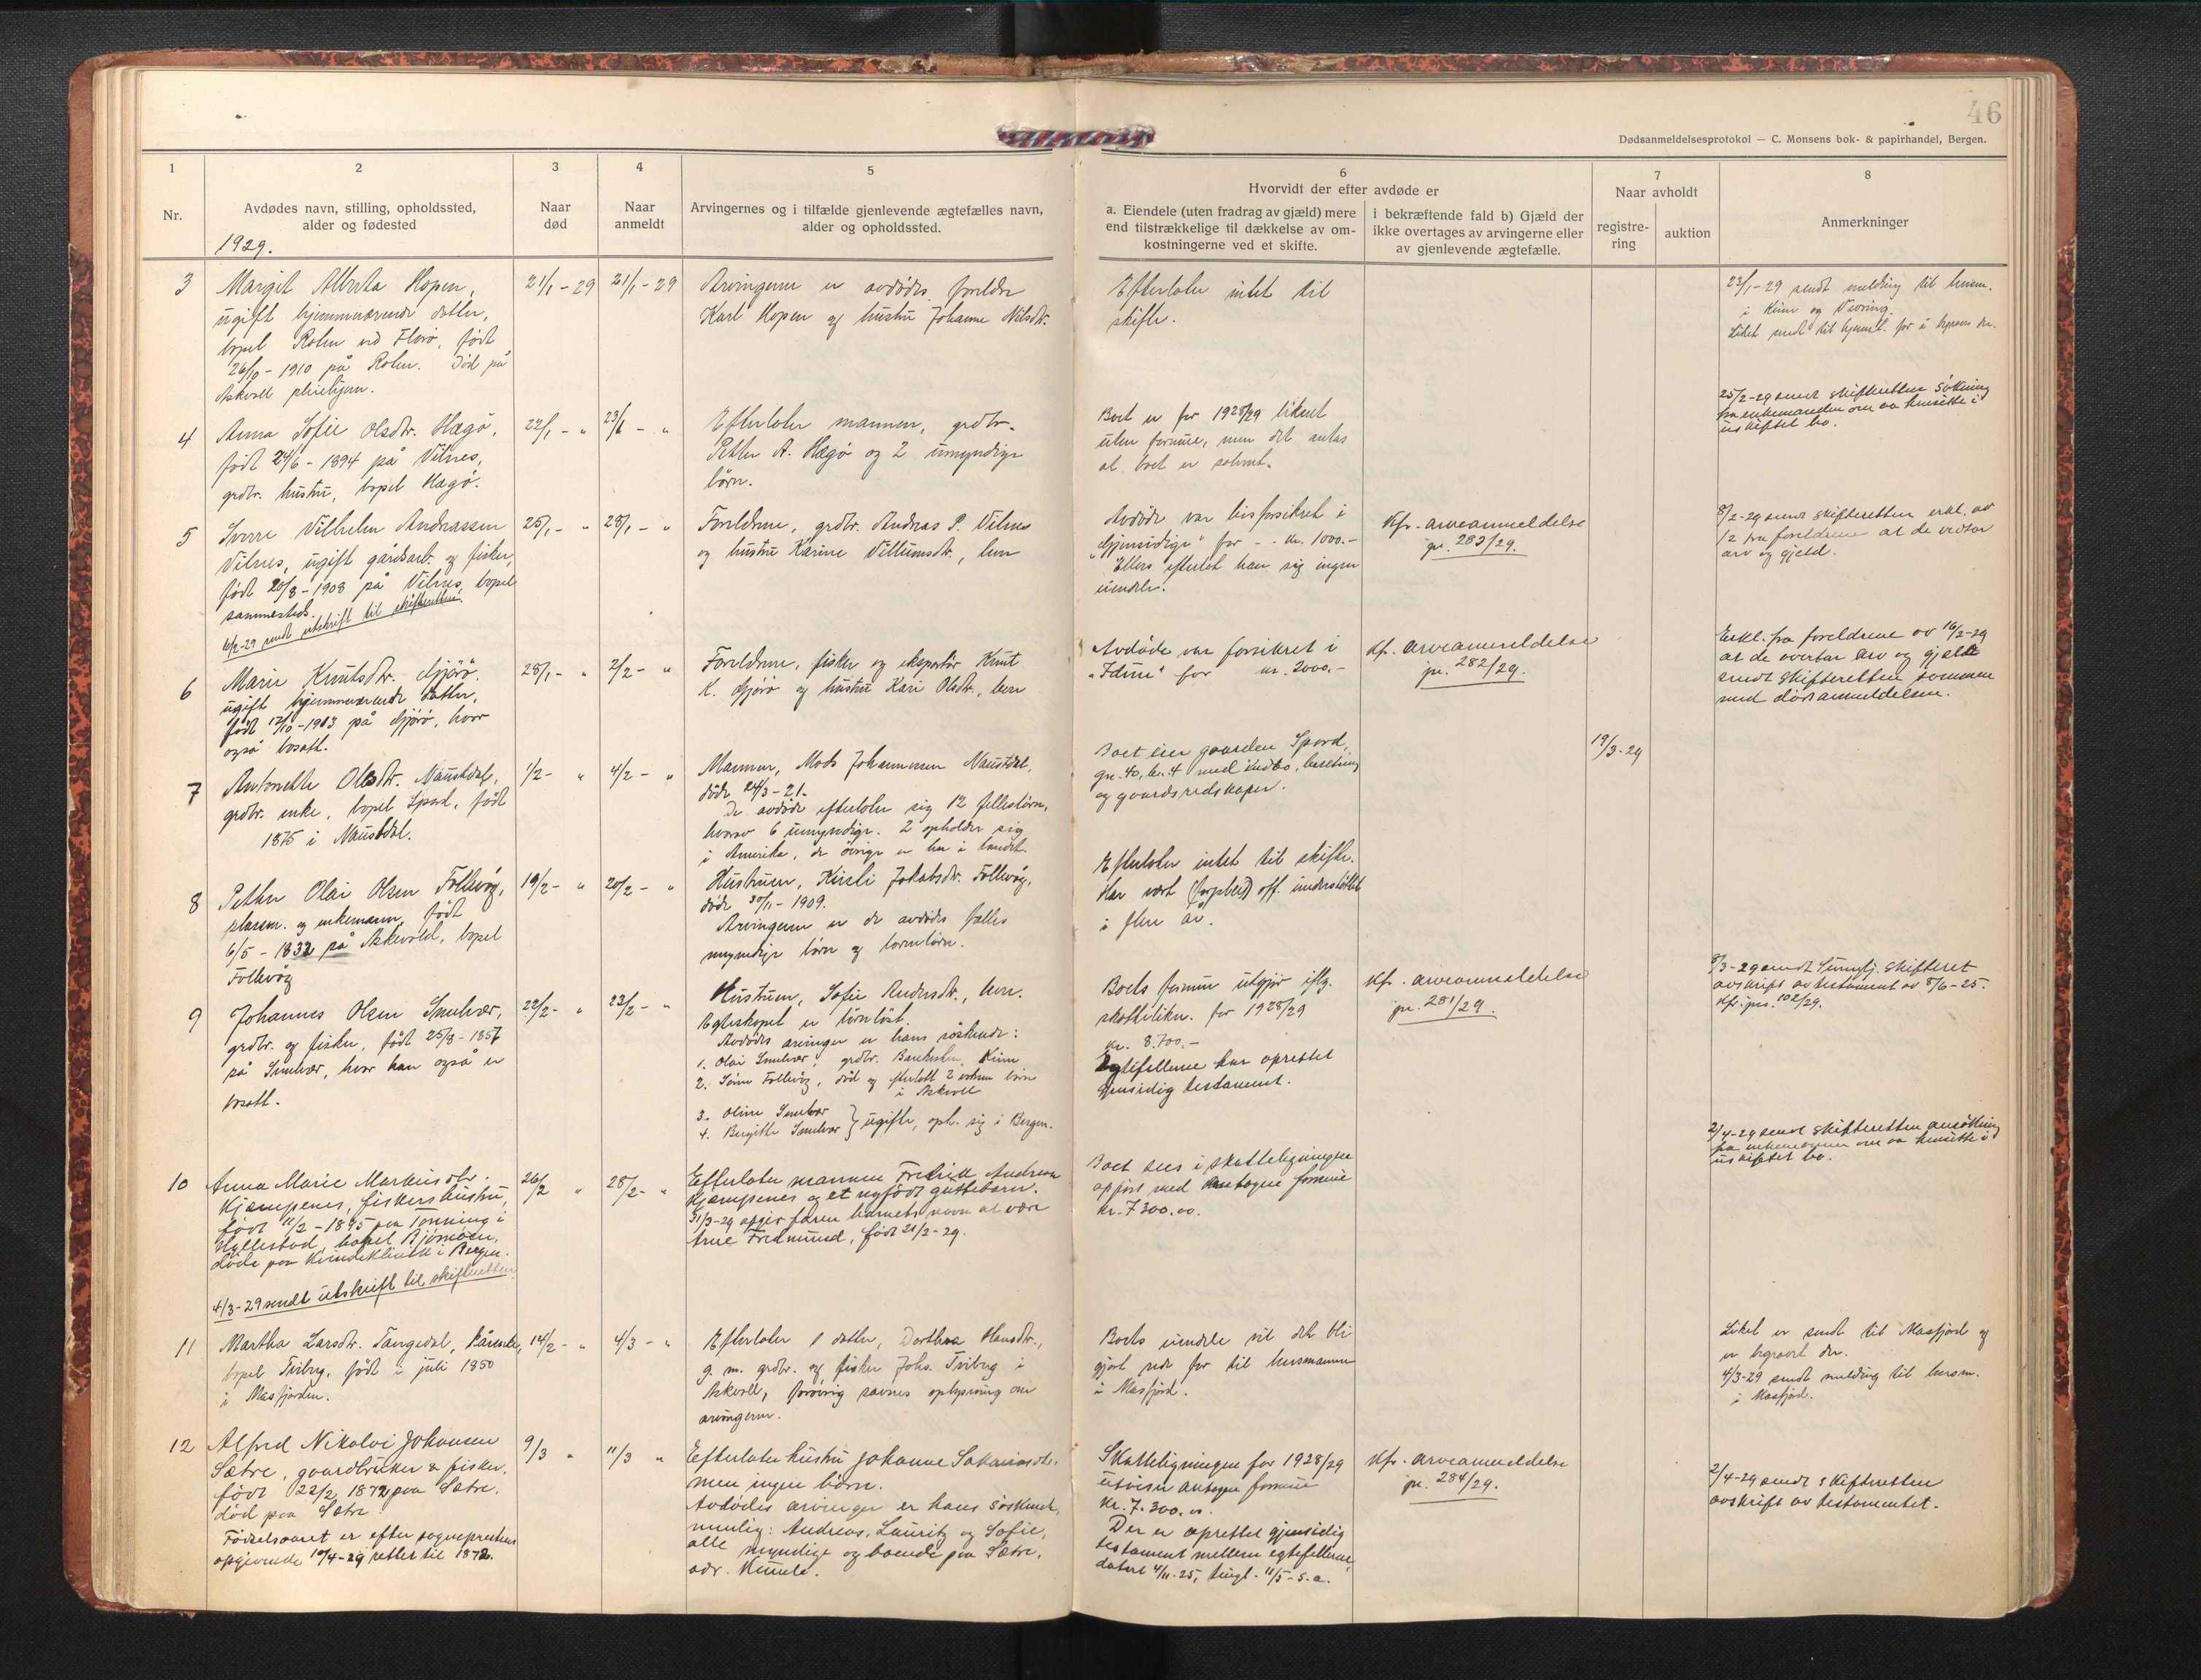 46
Dødsanmeldelsesprotokol — C. Monsens bok- & papirhandel, Bergen.
1
2
3
4
5
6
7
8
Nr.
Avdødes navn, stilling, opholdssted,
alder og fødested
Naar
død
Naar
anmeldt
Arvingernes og i tilfælde gjenlevende ægtefælles navn,
alder og opholdssted.
Hvorvidt der efter avdøde er
a. Eiendele (uten fradrag av gjæld) mere
end tilstrækkelige til dækkelse av om-
kostningerne ved et skifte.
i bekræftende fald b) Gjæld der
ikke overtages av arvingerne eller
av gjenlevende ægtefælle.
Naar avholdt
registre-
ring
auktion
Anmerkninger
1929.
3
Margit Alberta Hopen,
ugift hjemmeværende datter,
bopel Rolen ved Florø, født
1910 på Rolen. Død på
Askvoll pleiehjem.
21/1 - 29
21/1 - 29
Arvingerne er avdødes foreldre
Karl Hopen og hustru Johanne Nilsdtr.
Efterlater intet til
skifte.
22/1 - 29 sendt melding til lensm.
i Kinn og
Liket sendt til hjemst. for å begraves der.
4
Anna Sofie Olsdtr. Hægø,
født 24/6 - 1894 på Vilnes,
grdbr. hustru, bopel Hægø.
22/1 - "
23/1 - "
Efterlater mannen, grdbr.
Petter A. Hægø og 2 umyndige
børn.
Boet er for 1928/29 liknet
uten formue, men det antas
at boet er solvent.
25/2-29 sendt skifteretten søkning
fra enkemanden om aa hensitte i
uskiftet bo.
5
Sverre Vilhelm Andreassen
Vilnes, ugift gårdsarb. og fisker,
født 20/8 - 1908 på Vilnes, bopel
sammesteds.
6/2-29 sendt utskrift til skifteretten.
25/1 - "
28/1 - "
Foreldrene, grdbr. Andreas P. Vilnes
og hustru Karine Villumsdtr., lever
Avdøde var livsforsikret i
"Gjensidige" for - - kr. 1000.-
Ellers efterlot han sig ingen
eiendele.
Kfr. arveanmeldelse
jnr. 283/29.
8/2-29 sendt skifteretten erkl. av
1/2 fra foreldrene at de vedtar
arv og gjeld.
6
Marie Knutsdtr. Gjørø.
ugift hjemmeværende datter,
født 12/10 - 1903 på Gjørø, hvor
også bosatt.
28/1 - "
2/2 - "
Foreldrene, fisker og eksportør Knut
K. Gjørø og hustru Kari Olsdtr., lever
Avdøde var forsikret i
"Idun" for kr. 2000.-
Kfr. arveanmeldelse
jnr. 282/29.
Erkl. fra foreldrene av 16/2-29
at de overtar arv og gjeld
sendt skifteretten sammen
med dødsanmeldelsen.
7
Antonette Olsdtr. Naustdal,
grdbr. enke, bopel Spord, født
1875 i Naustdal.
1/2 - "
4/2 - "
Mannen, Mads Johannessen Naustdal,
døde 24/3 - 21.
De avdøde efterlater sig 12 fellesbørn,
hvorav 6 umyndige. 2 opholder sig
i Amerika, de øvrige er her i landet.
Boet eier gaarden Spord,
gnr. 40, br. 4 med indbo, besetning
og gaardsredskaper.
19/3-29
8
Petter Olai Olsen Follevåg,
plassm. og enkemann, født
6/5 - 1832 på Askvold, bopel
Follevåg
19/2 - "
20/2 - "
Hustruen, Kirsti Jakobsdtr. Follevåg,
døde 30/11 - 1909.
Arvingerne er de avdødes felles
myndige børn og barnebørn.
Efterlater intet til skifte.
Har vært off. understøttet
i flere år.
9
Johannes Olsen Smelvær,
grdbr. og fisker, født 25/8 - 1857
på Smelvær, hvor han også er
bosatt.
22/2 - "
23/2 - "
Hustruen, Sofie Andersdtr., lever.
Egteskapet er barnløst.
Avdødes arvinger er hans søskende:
1. Olai Smelvær, grdbr. Kinn
2. Follevåg, død og efterlatt 2 voksne børn
i Askvoll
3. Oline Smelvær
4. Bergitte Smelvær } ugifte, oph. sig i Bergen.
Boets formue utgjør iflg.
skattelikn. for 1928/29
kr. 8.700.-
Egtefellene har oprettet
gjensidig testament.
Kfr. arveanmeldelse
jnr. 281/29.
8/3-29 sendt Sunnfj. skifteret
avskrift av testament av 8/6-25.
Kfr. jnr. 102/29.
10
Anna Marie Markusdtr.
Kjempenes, fiskers hustru,
født 11/2 - 1895 paa Tønning i
Hyllestad, bopel Bjørnøen,
døde paa Kvindeklinikk i Bergen.
4/3-29 sendt utskrift til skifteretten
26/2 "
28/2 - "
Efterlater mannen Fredrik Andreas
Kjempenes og et nyfødt guttebarn.
21/3-29 opgir faren barnets navn at være
Arne Fredmund, født 21/2-29.
Boet sees i skatteligningen
opført med antagen formue
kr. 7300.00.
2/4-29 sendt skifteretten ansøkning
fra enkemannen om aa hensitte i
uskiftet bo.
11
Martha Larsdtr. Tangedal, kårenke,
bopel Tviberg, født i juli 1850
i Masfjorden.
14/2 - "
4/3 - "
Efterlater 1 datter, Dorthea Hansdtr.,
g. m. grdbr. og fisker Johs. Tviberg i
Askvoll, forøvrig savnes oplysning om
arvingerne.
Boets eiendele vil det bli
gjort rede for til lensmannen
i Masfjord.
Liket er sendt til Masfjord og
er begravet der.
4/3-29 sendt melding til lensm.
i Masfjord.
12
Alfred Nikolai Johansen
Sætre, gaardbruker & fisker,
født 22/2 1872 paa Sætre,
død paa Sætre.
Fødselsaaret er efter sogneprestens
opgivende 10/4-29 rettet til 1872.
9/3 "
11/3 "
Efterlater hustru Johanne Sakariasdtr.
men ingen børn.
Avdødes arvinger er hans søskende,
nemlig: Andreas, Lauritz og Sofie,
alle myndige og boende paa Sætre,
adr. Kumle.
Skatteligningen for 1928/29
utviser antagen formue
kr. 7.300.00.
Der er oprettet gjensidig
testament mellem egtefellerne,
datert 4/11-25, tingl. 11/5 - s.a.
Kfr. arveanmeldelse
jnr. 284/29.
2/4-29 sendt skifteretten
avskrift av testamentet.